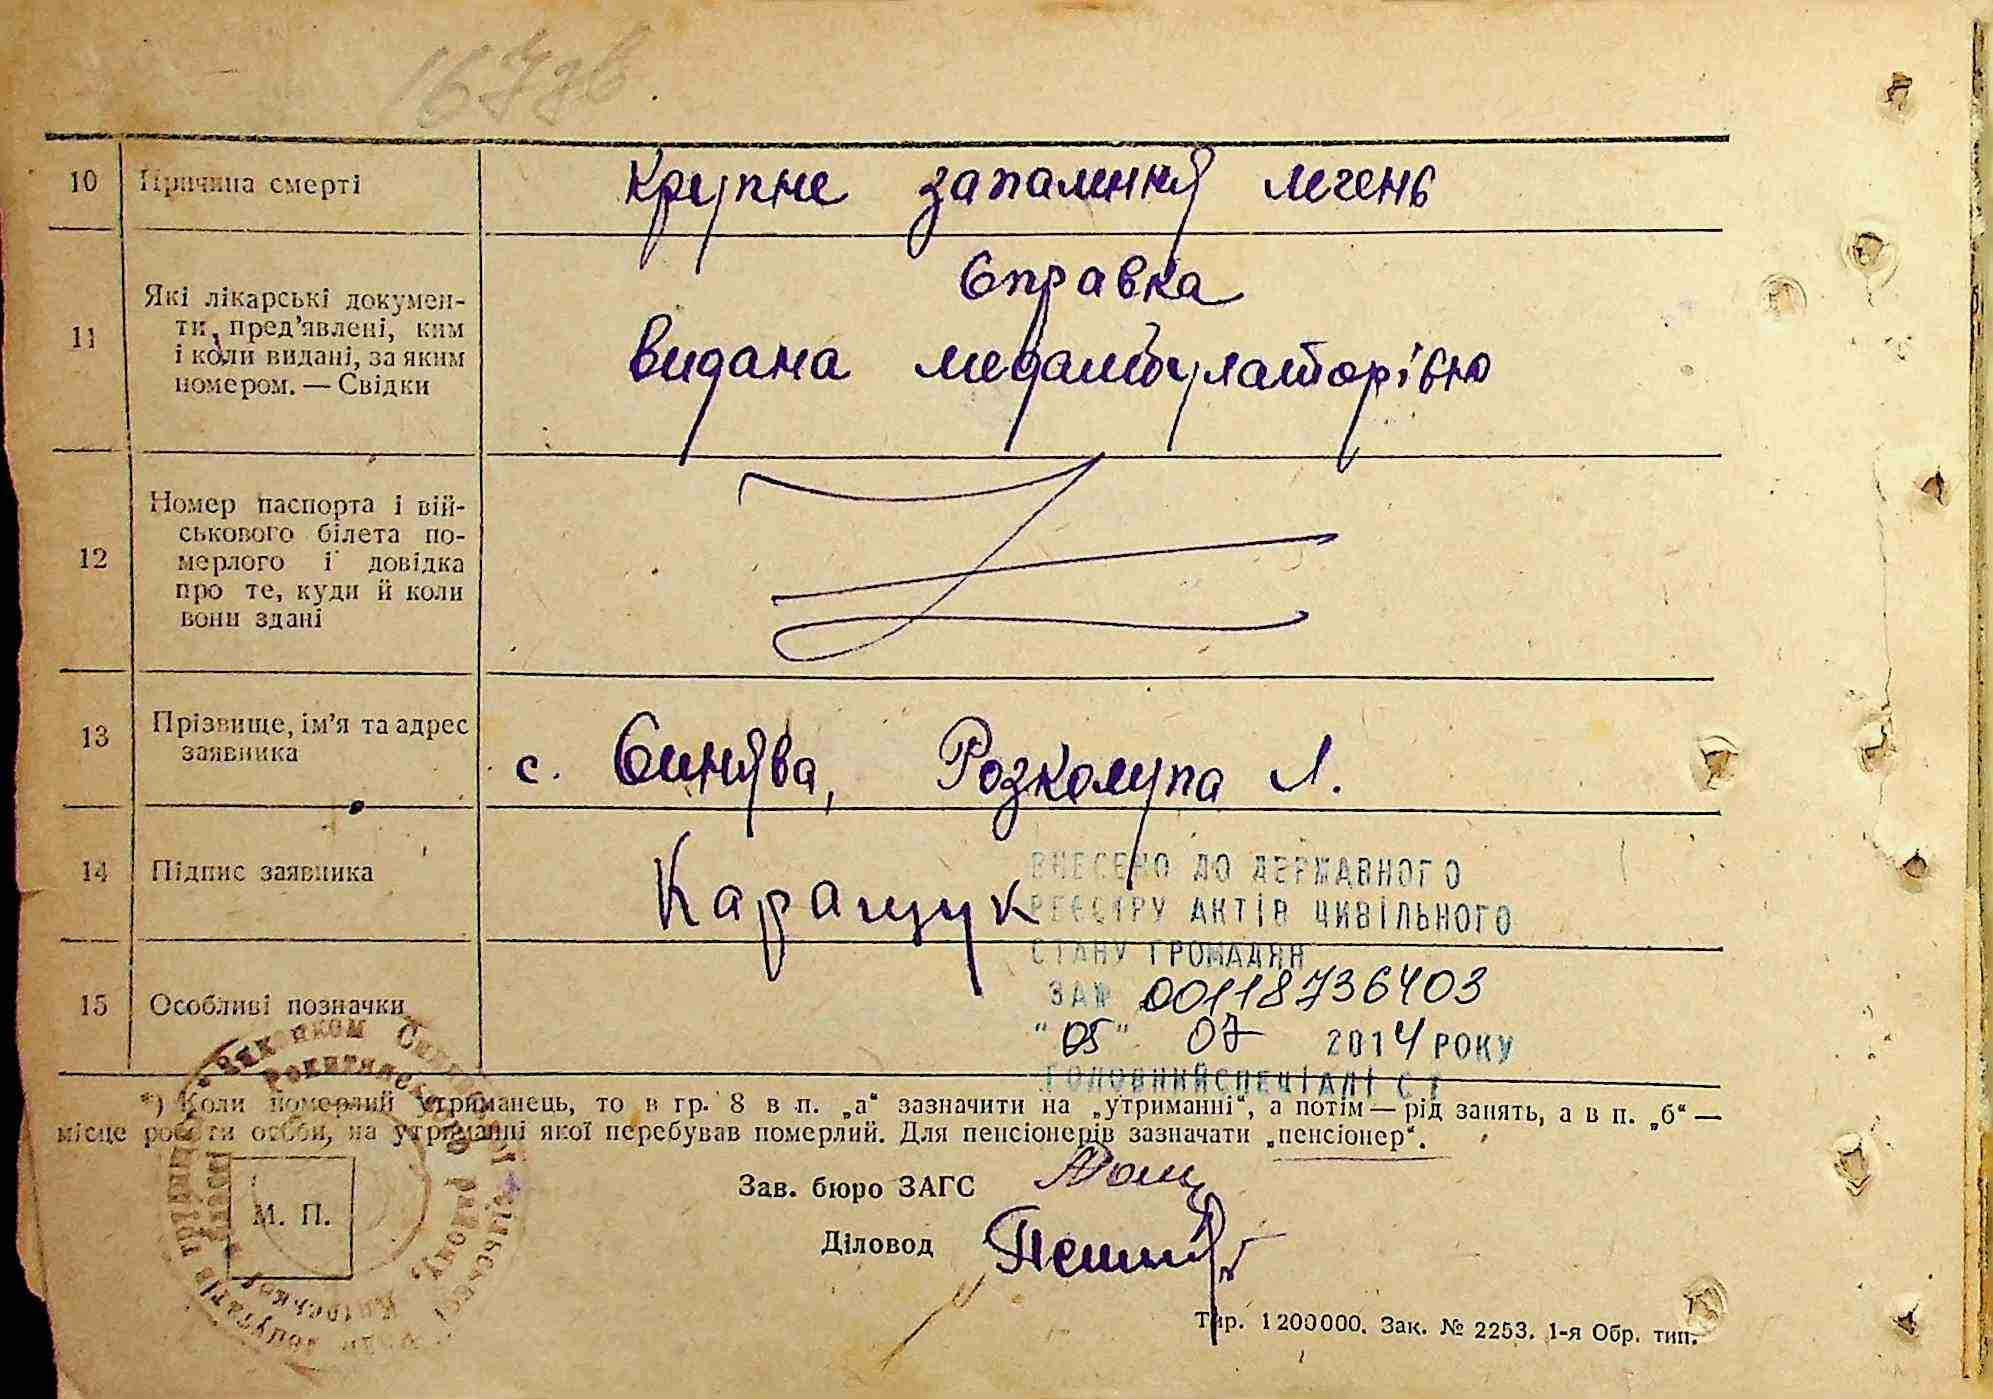 167зв.
10 Причина смерті Крупне запалення легень
11 Які лікарські докумен-
ти, пред'явлені, ким
і коли видані, за яким
номером. — Свідки
Справка
видана медамбулаторією
12 Номер паспорта і вій-
ськового білета по-
мерлого і довідка
про те, куди й коли
вони здані
13 Прізвище, ім'я та адрес
заявника
с. Синява, Розколупа Л.
14 Підпис заявника
Каращук
ВНЕСЕНО ДО ДЕРЖАВНОГО
РЕЄСТРУ АКТІВ ЦИВІЛЬНОГО
СТАНУ ГРОМАДЯН
ЗА № 00118736403
"05" 07 2014 РОКУ
ГОЛОВНИЙ СПЕЦІАЛІСТ
15 Особливі позначки
*) Коли померлий утриманець, то в гр. 8 в п. „а“ зазначити на „утриманні“, а потім — рід занять, а в п. „б“ —
місце роботи особи, на утриманні якої перебував померлий. Для пенсіонерів зазначати „пенсіонер“.
Зав. бюро ЗАГС
М. П.
Діловод
Тир. 1200000. Зак. № 2253. 1-я Обр. тип.